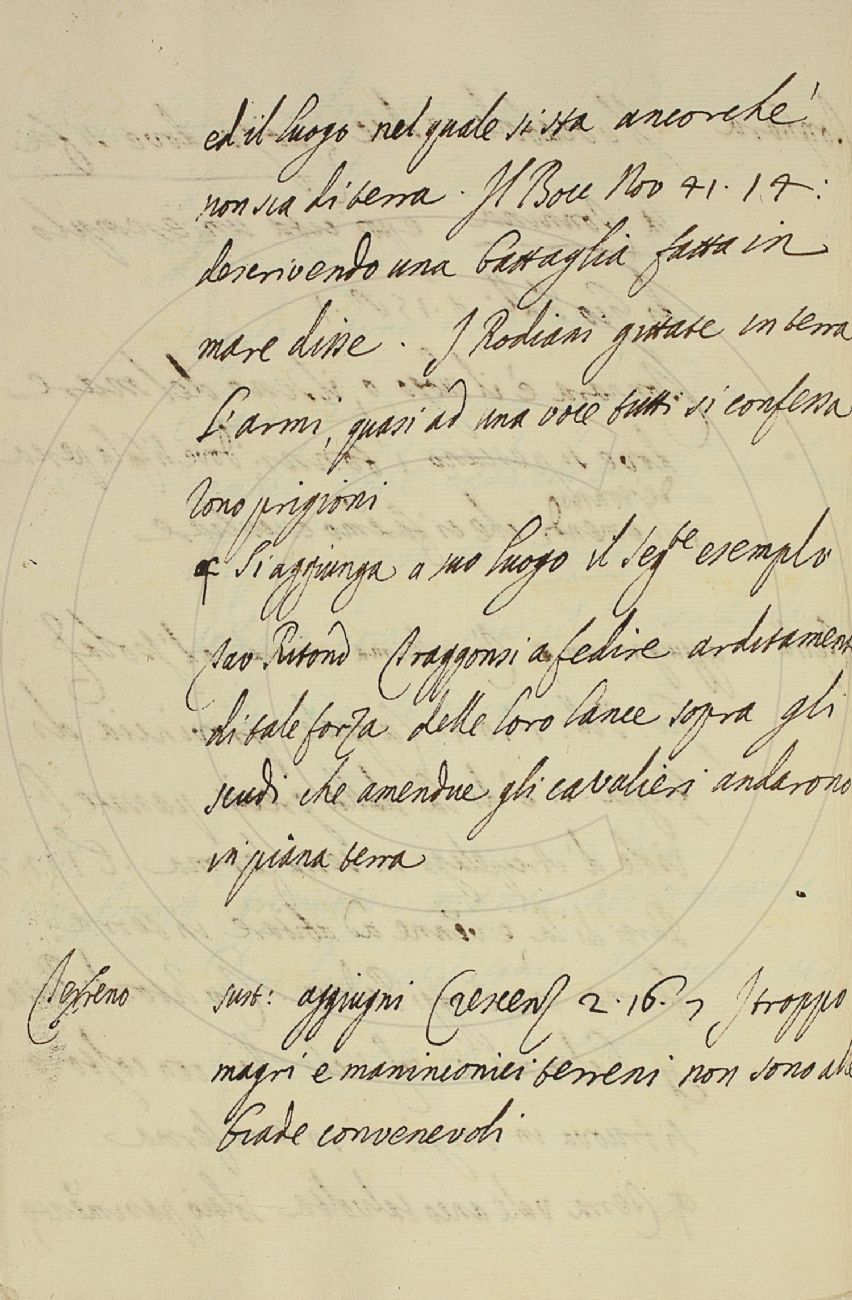 ed il luogo nel quale si sta ancorche'
non sia di terra. Il Bocc Nov 41. 14:
descrivendo una battaglia fatta in
mare disse. I Rodiani gittate in terra
L'armi, quasi ad una voce tutti si confessa
rono prigioni
Si aggiunga a suo luogo il segte esempio
Tav Ritond Traggonsi a fedire arditament
di tale forza delle loro lance sopra gli
scudi che amendue gli cavalieri andarono
in piana terra
Terreno sust: aggiugni Crescenz 2. 16. 7 I troppo
magri e maninconici terreni non sono alle
biade convenevoli